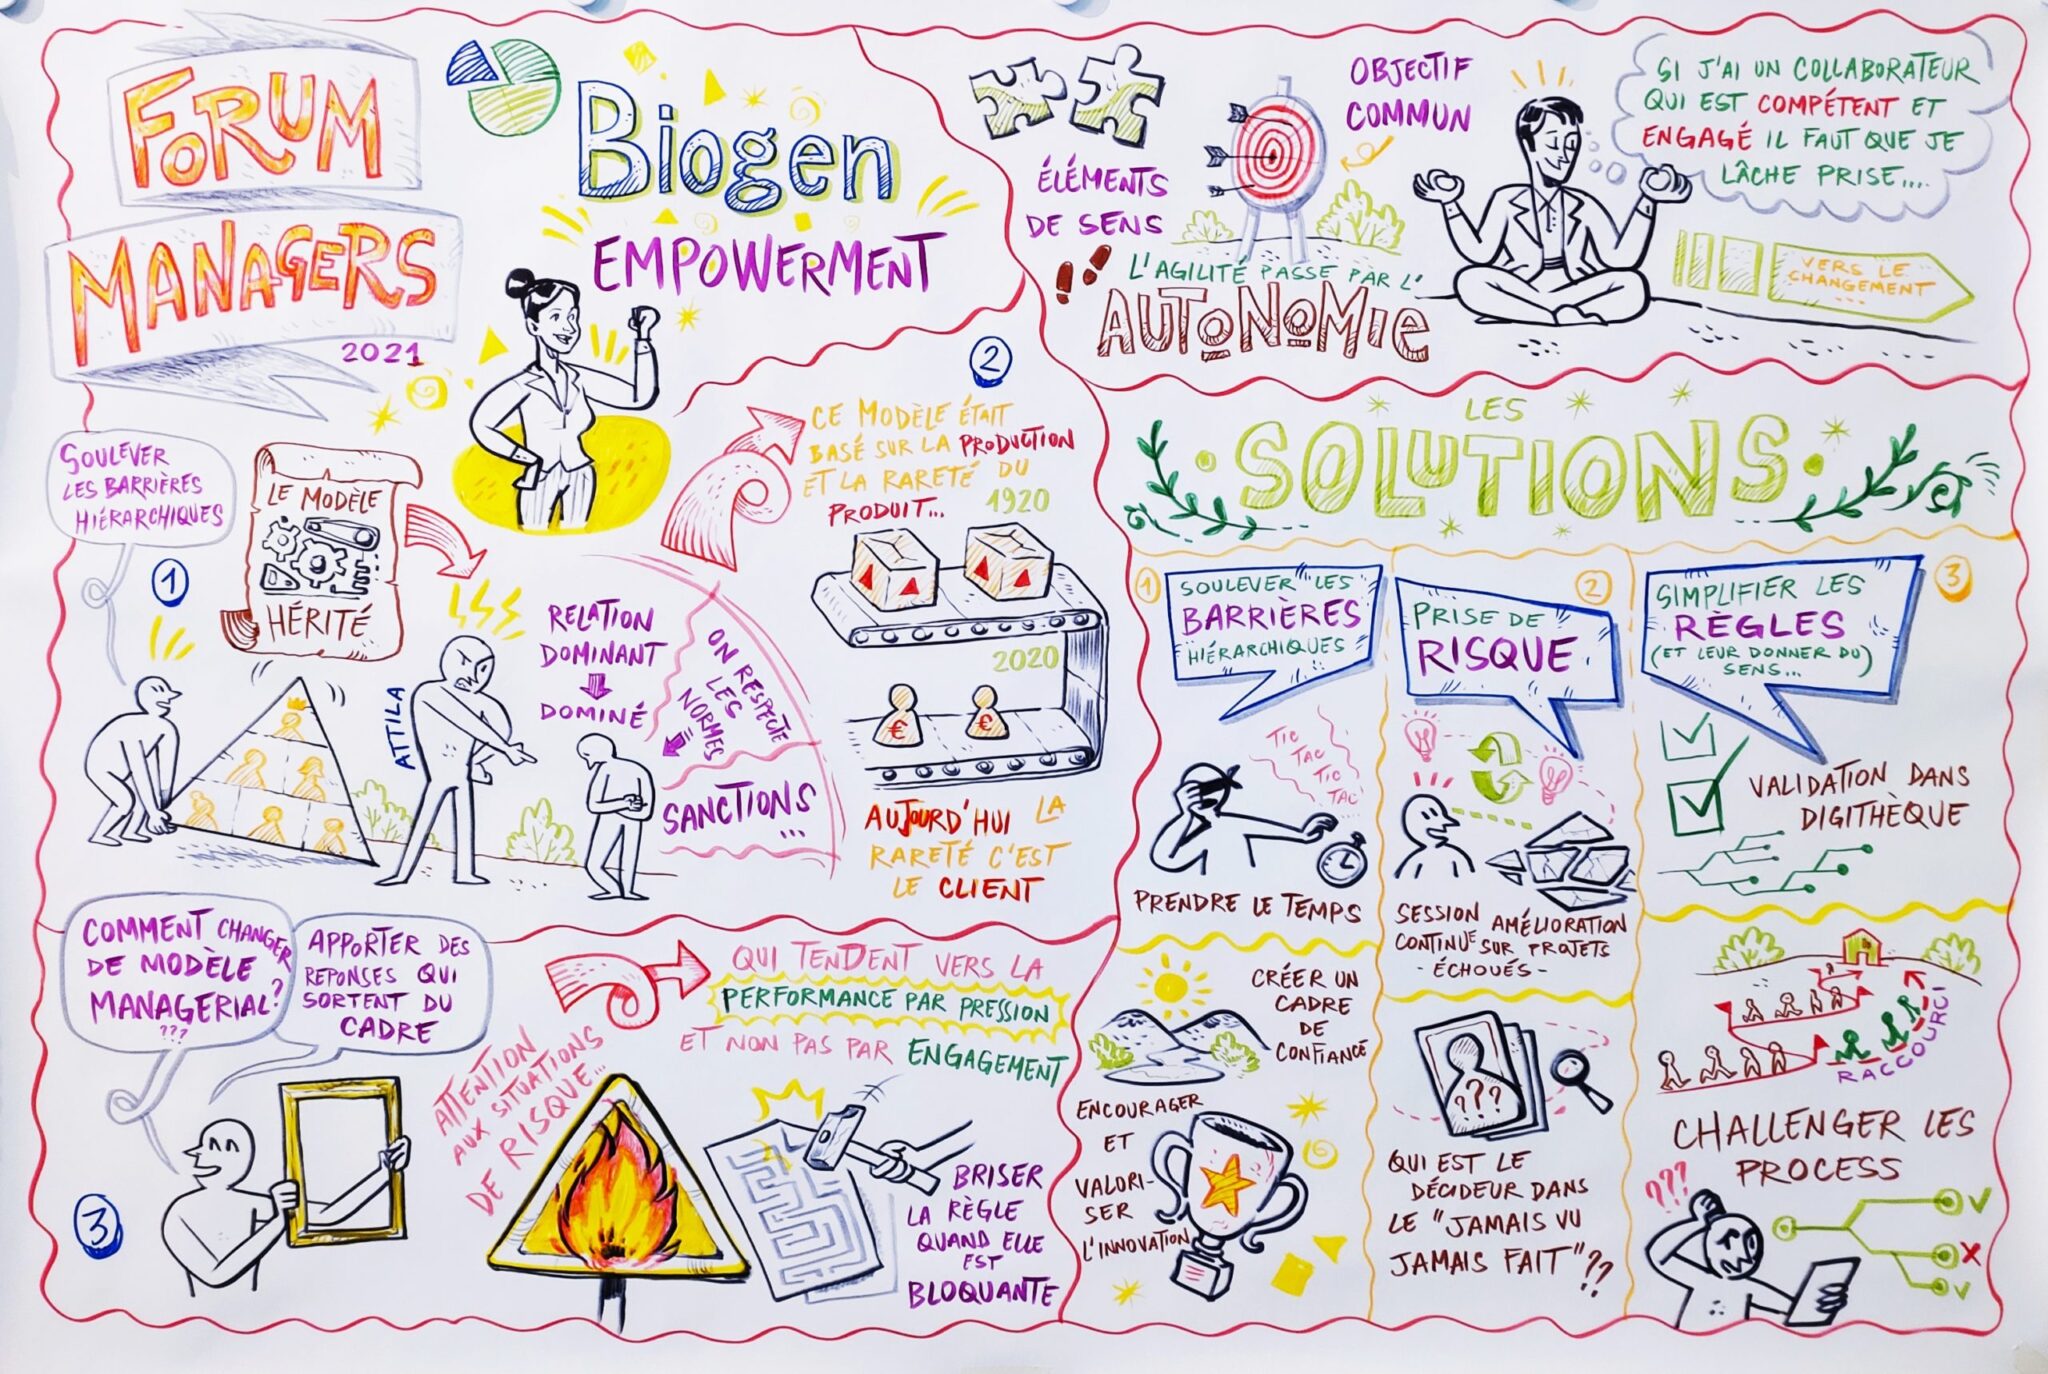 FORUM
MANAGERS
2021
Biogen
EMPOWERMENT
ÉLÉMENTS
DE SENS
OBJECTIF
COMMUN
L'AGILITÉ PASSE PAR L'
AUTONOMIE
SI J'AI UN COLLABORATEUR
QUI EST COMPÉTENT ET
ENGAGÉ IL FAUT QUE JE
LÂCHE PRISE....
VERS LE
CHANGEMENT
...
SOULEVER
LES BARRIÈRES
HIÉRARCHIQUES
1
LE MODÈLE
HÉRITÉ
ATTILA
RELATION
DOMINANT
DOMINÉ
ON RESPECTE
LES
NORMES
SANCTIONS
...
2
CE MODÈLE ÉTAIT
BASÉ SUR LA PRODUCTION
ET LA RARETÉ DU
PRODUIT...
1920
2020
€
€
AUJOURD'HUI LA
RARETÉ C'EST
LE CLIENT
COMMENT CHANGER
DE MODÈLE
MANAGERIAL?
???
APPORTER DES
REPONSES QUI
SORTENT DU
CADRE
3
ATTENTION
AUX SITUATIONS
DE RISQUE...
QUI TENDENT VERS LA
PERFORMANCE PAR PRESSION
ET NON PAS PAR ENGAGEMENT
BRISER
LA RÈGLE
QUAND ELLE
EST
BLOQUANTE
LES
SOLUTIONS
1
SOULEVER LES
BARRIÈRES
HIÉRARCHIQUES
TIC
TAC
TIC
TAC
PRENDRE LE TEMPS
CRÉER UN
CADRE
DE
CONFIANCE
ENCOURAGER
ET
VALORI-
SER
L'INNOVATION
2
PRISE DE
RISQUE
SESSION AMÉLIORATION
CONTINUE SUR PROJETS
- ÉCHOUÉS -
???
QUI EST LE
DÉCIDEUR DANS
LE "JAMAIS VU
JAMAIS FAIT"??
3
SIMPLIFIER LES
RÈGLES
(ET LEUR DONNER DU)
SENS...
VALIDATION DANS
DIGITHÈQUE
RACCOURCI
CHALLENGER LES
PROCESS
???